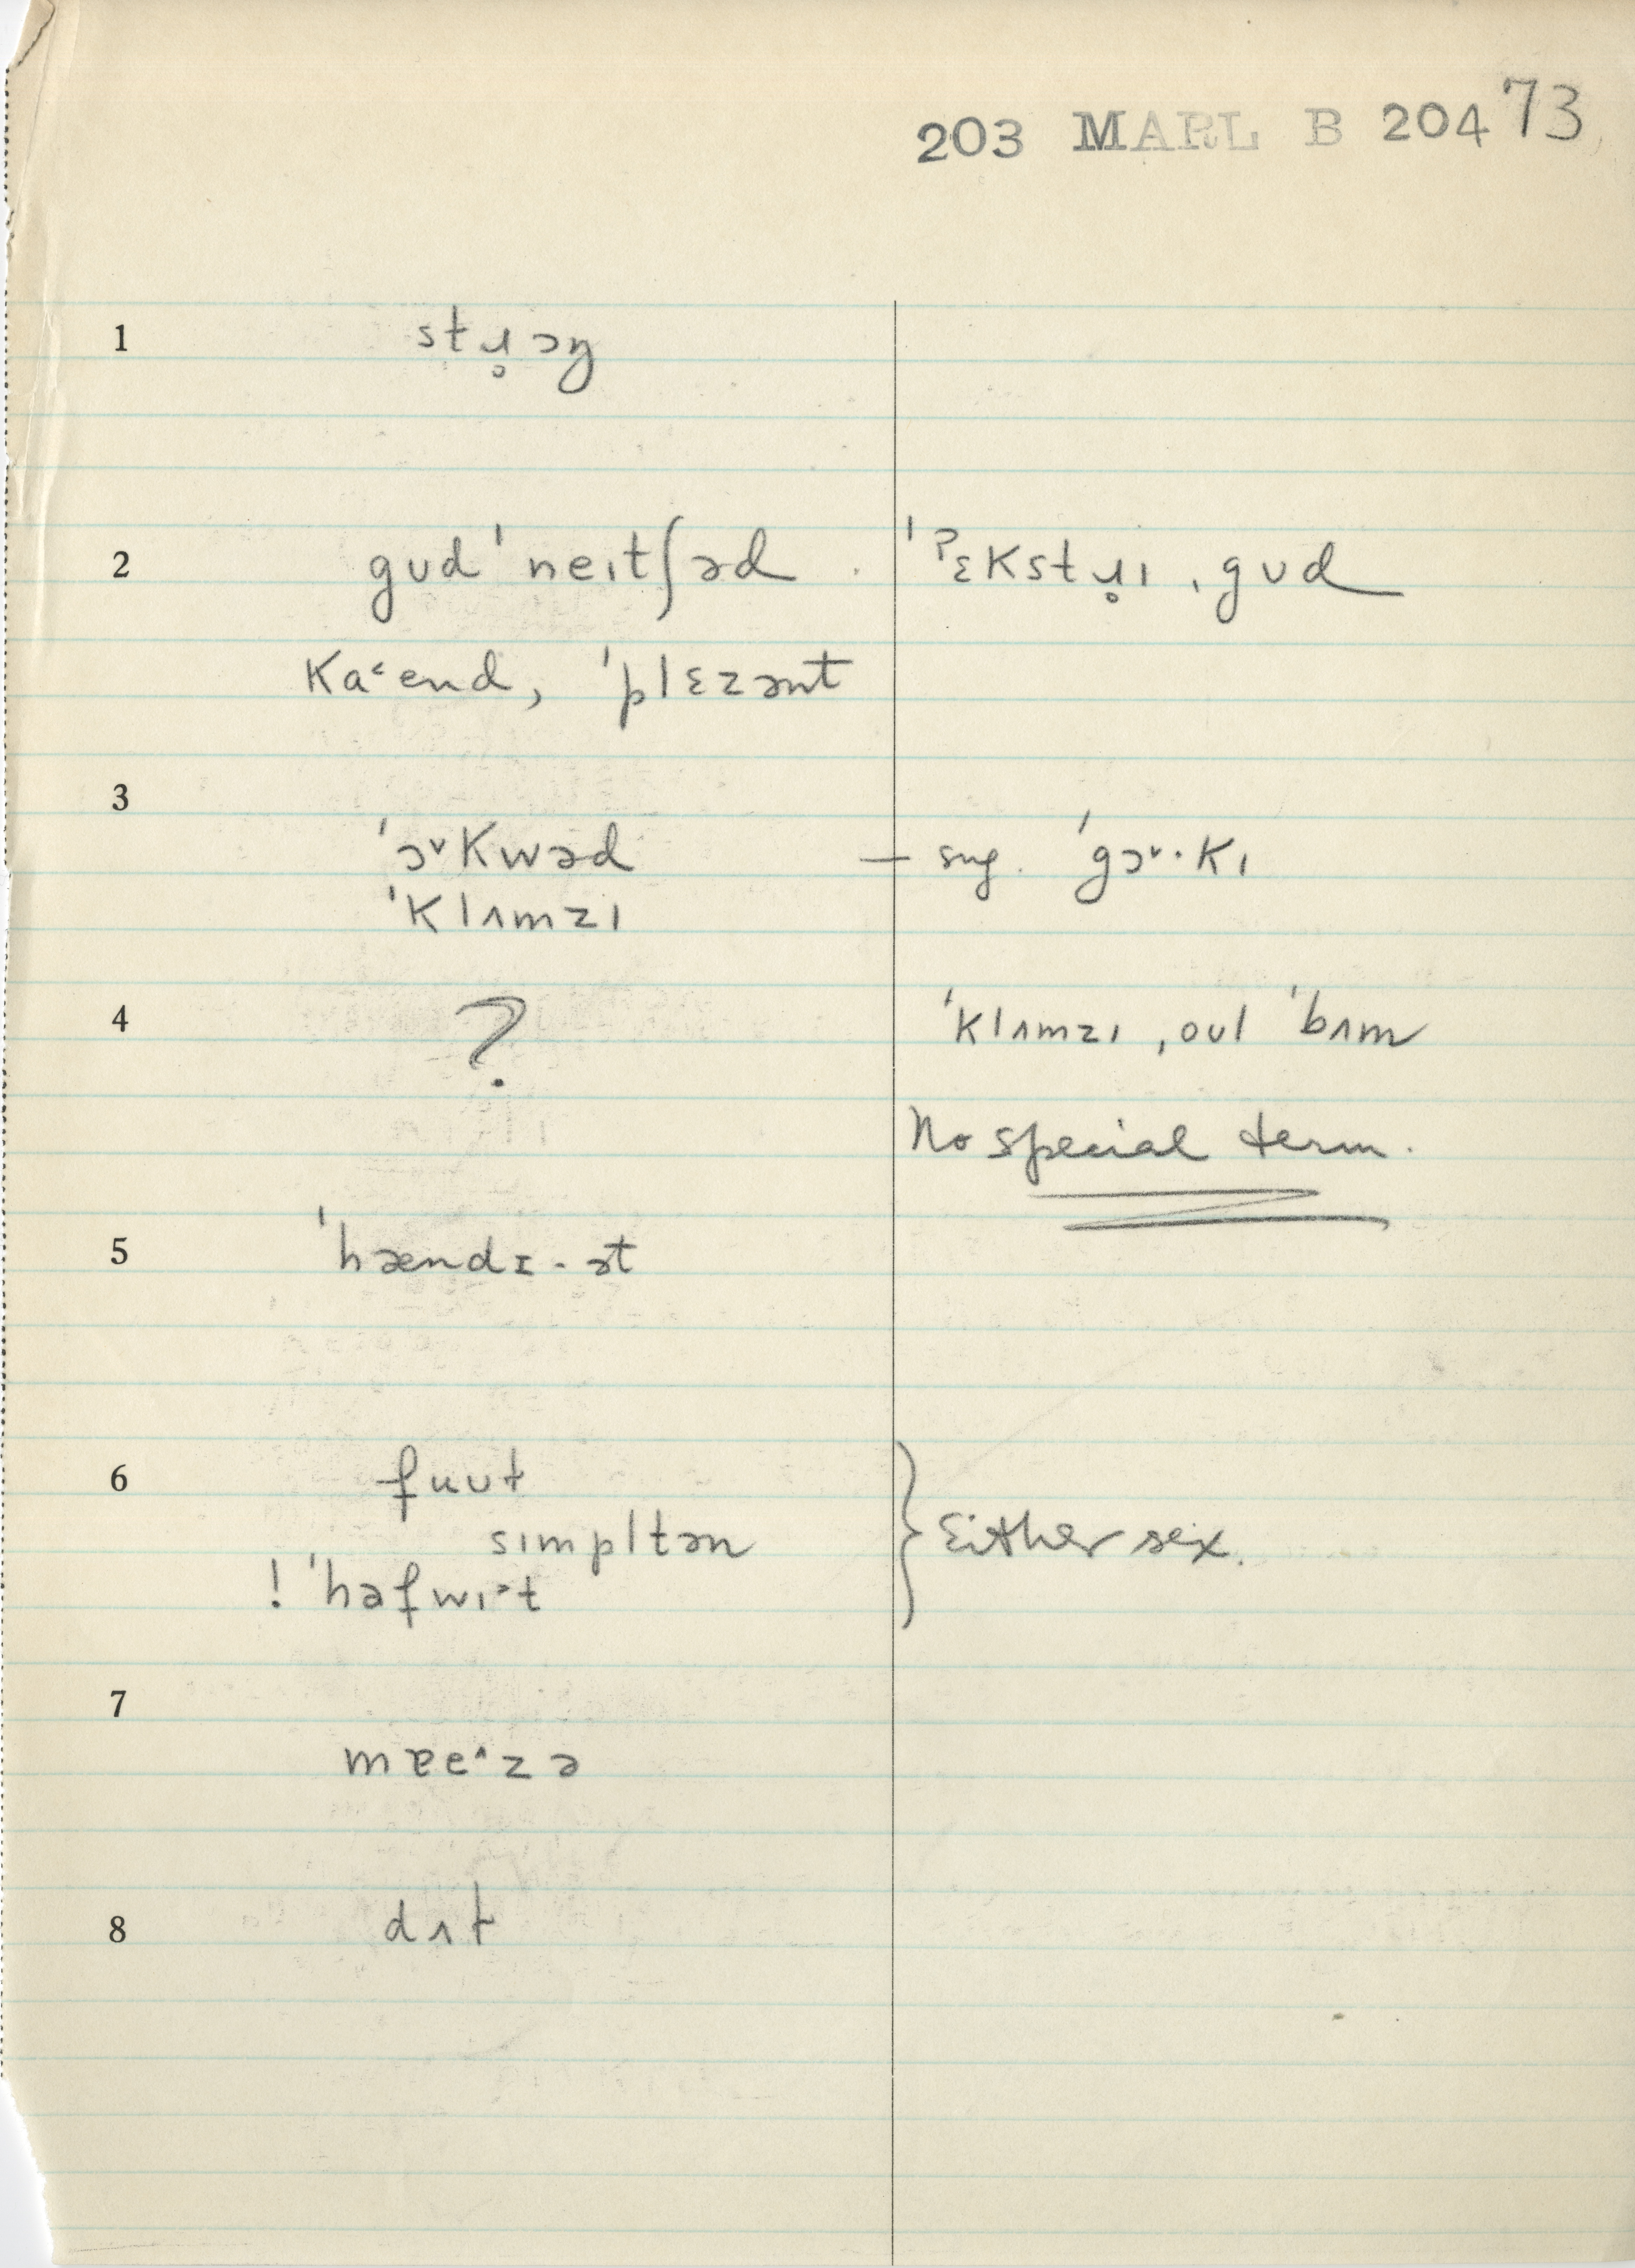 203 MARL B 204 73
1 stɹ̥ɔŋ
2 gʊd ˈneɪtʃəd . ˈˀɛkstɹ̥ɪ ˌgʊd
kaˤend, ˈplɛzənt
3
ˈɔᵛkwəd — sug. ˈgɔᵛ·kɪ
ˈklʌmzɪ
4 ? ˈklʌmzɪ, oʊl ˈbʌm
No special term.
5 ˈhændɪ-ət
6 fuʊɫ
sɪmpltən } Either sex.
! ˈhəfwɪᵊt
7
mɐe^zə
8 dʌɫ